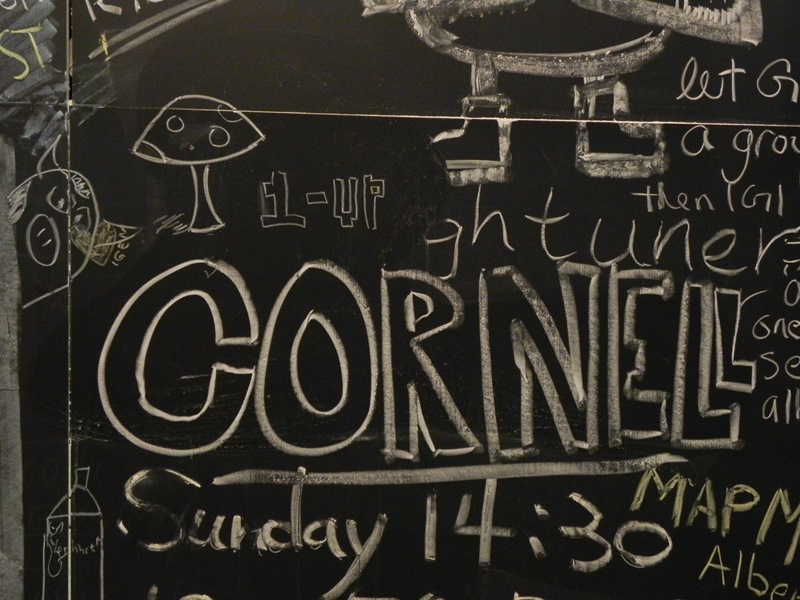 ST
let G
a grou
1-UP
then IGI
ghtuner
CORNELL
one
se
all
Sunday 14:30
MAPM
Albe